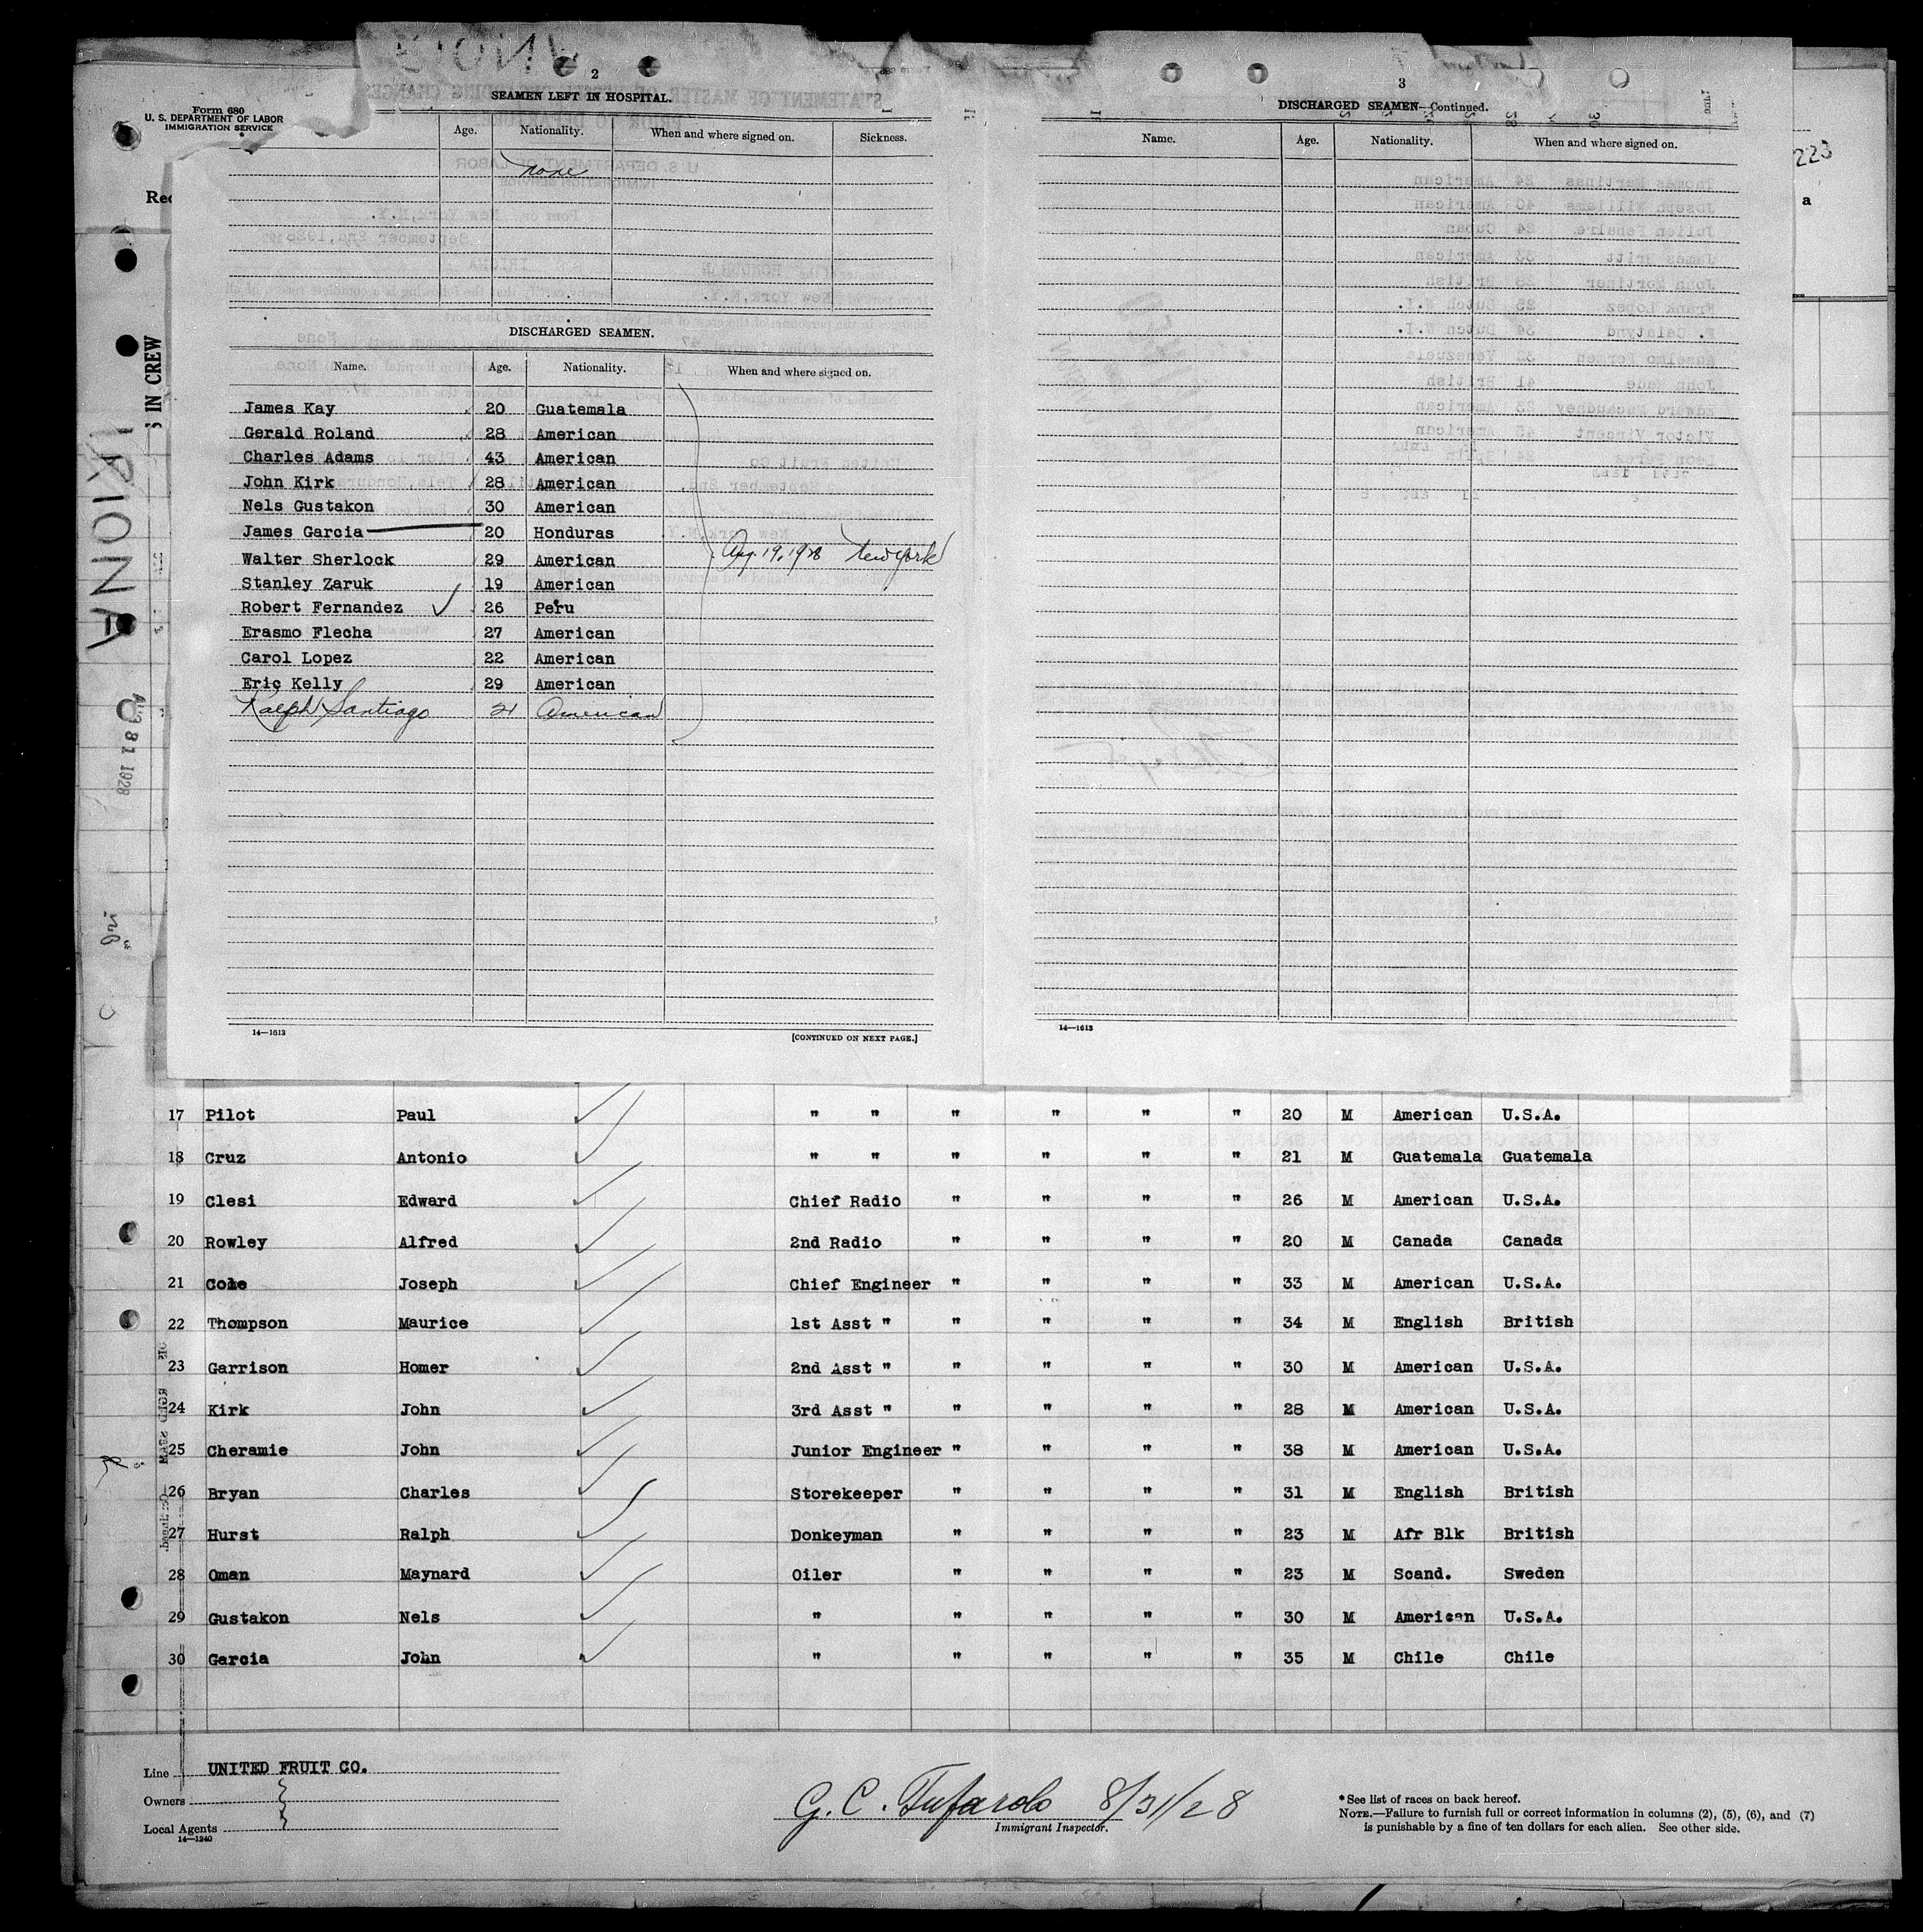 2
SEAMEN LEFT IN HOSPITAL.
Form 680
U. S. DEPARTMENT OF LABOR
IMMIGRATION SERVICE
Age. Nationality. When and where signed on. Sickness.
none
DISCHARGED SEAMEN.
Name. Age. Nationality. When and where signed on.
James Kay 20 Guatemala
Gerald Roland 28 American
Charles Adams 43 American
John Kirk 28 American
Nels Gustakon 30 American
James Garcia 20 Honduras
Walter Sherlock 29 American
Stanley Zaruk 19 American
Robert Fernandez 26 Peru
Erasmo Flecha 27 American
Carol Lopez 22 American
Eric Kelly 29 American
Ralph Santiago 21 American
Aug. 19, 1928 New York
14—1613
[CONTINUED ON NEXT PAGE.]
3
DISCHARGED SEAMEN—Continued.
Name. Age. Nationality. When and where signed on.
14—1613
223
a
S IN CREW
IRIONA
AUG 31 1928
17 Pilot Paul " " " " " " 20 M American U.S.A.
18 Cruz Antonio " " " " " " 21 M Guatemala Guatemala
19 Clesi Edward Chief Radio " " " " 26 M American U.S.A.
20 Rowley Alfred 2nd Radio " " " " 20 M Canada Canada
21 Cole Joseph Chief Engineer " " " " 33 M American U.S.A.
22 Thompson Maurice 1st Asst " " " " " 34 M English British
23 Garrison Homer 2nd Asst " " " " " 30 M American U.S.A.
24 Kirk John 3rd Asst " " " " " 28 M American U.S.A.
25 Cheramie John Junior Engineer " " " " 38 M American U.S.A.
26 Bryan Charles Storekeeper " " " " 31 M English British
27 Hurst Ralph Donkeyman " " " " 23 M Afr Blk British
28 Oman Maynard Oiler " " " " 23 M Scand. Sweden
29 Gustakon Nels " " " " " 30 M American U.S.A.
30 Garcia John " " " " " 35 M Chile Chile
Line UNITED FRUIT CO.
Owners
Local Agents
14—1240
G. C. Tufarolo 8/31/28
Immigrant Inspector.
* See list of races on back hereof.
NOTE.—Failure to furnish full or correct information in columns (2), (5), (6), and (7)
is punishable by a fine of ten dollars for each alien. See other side.